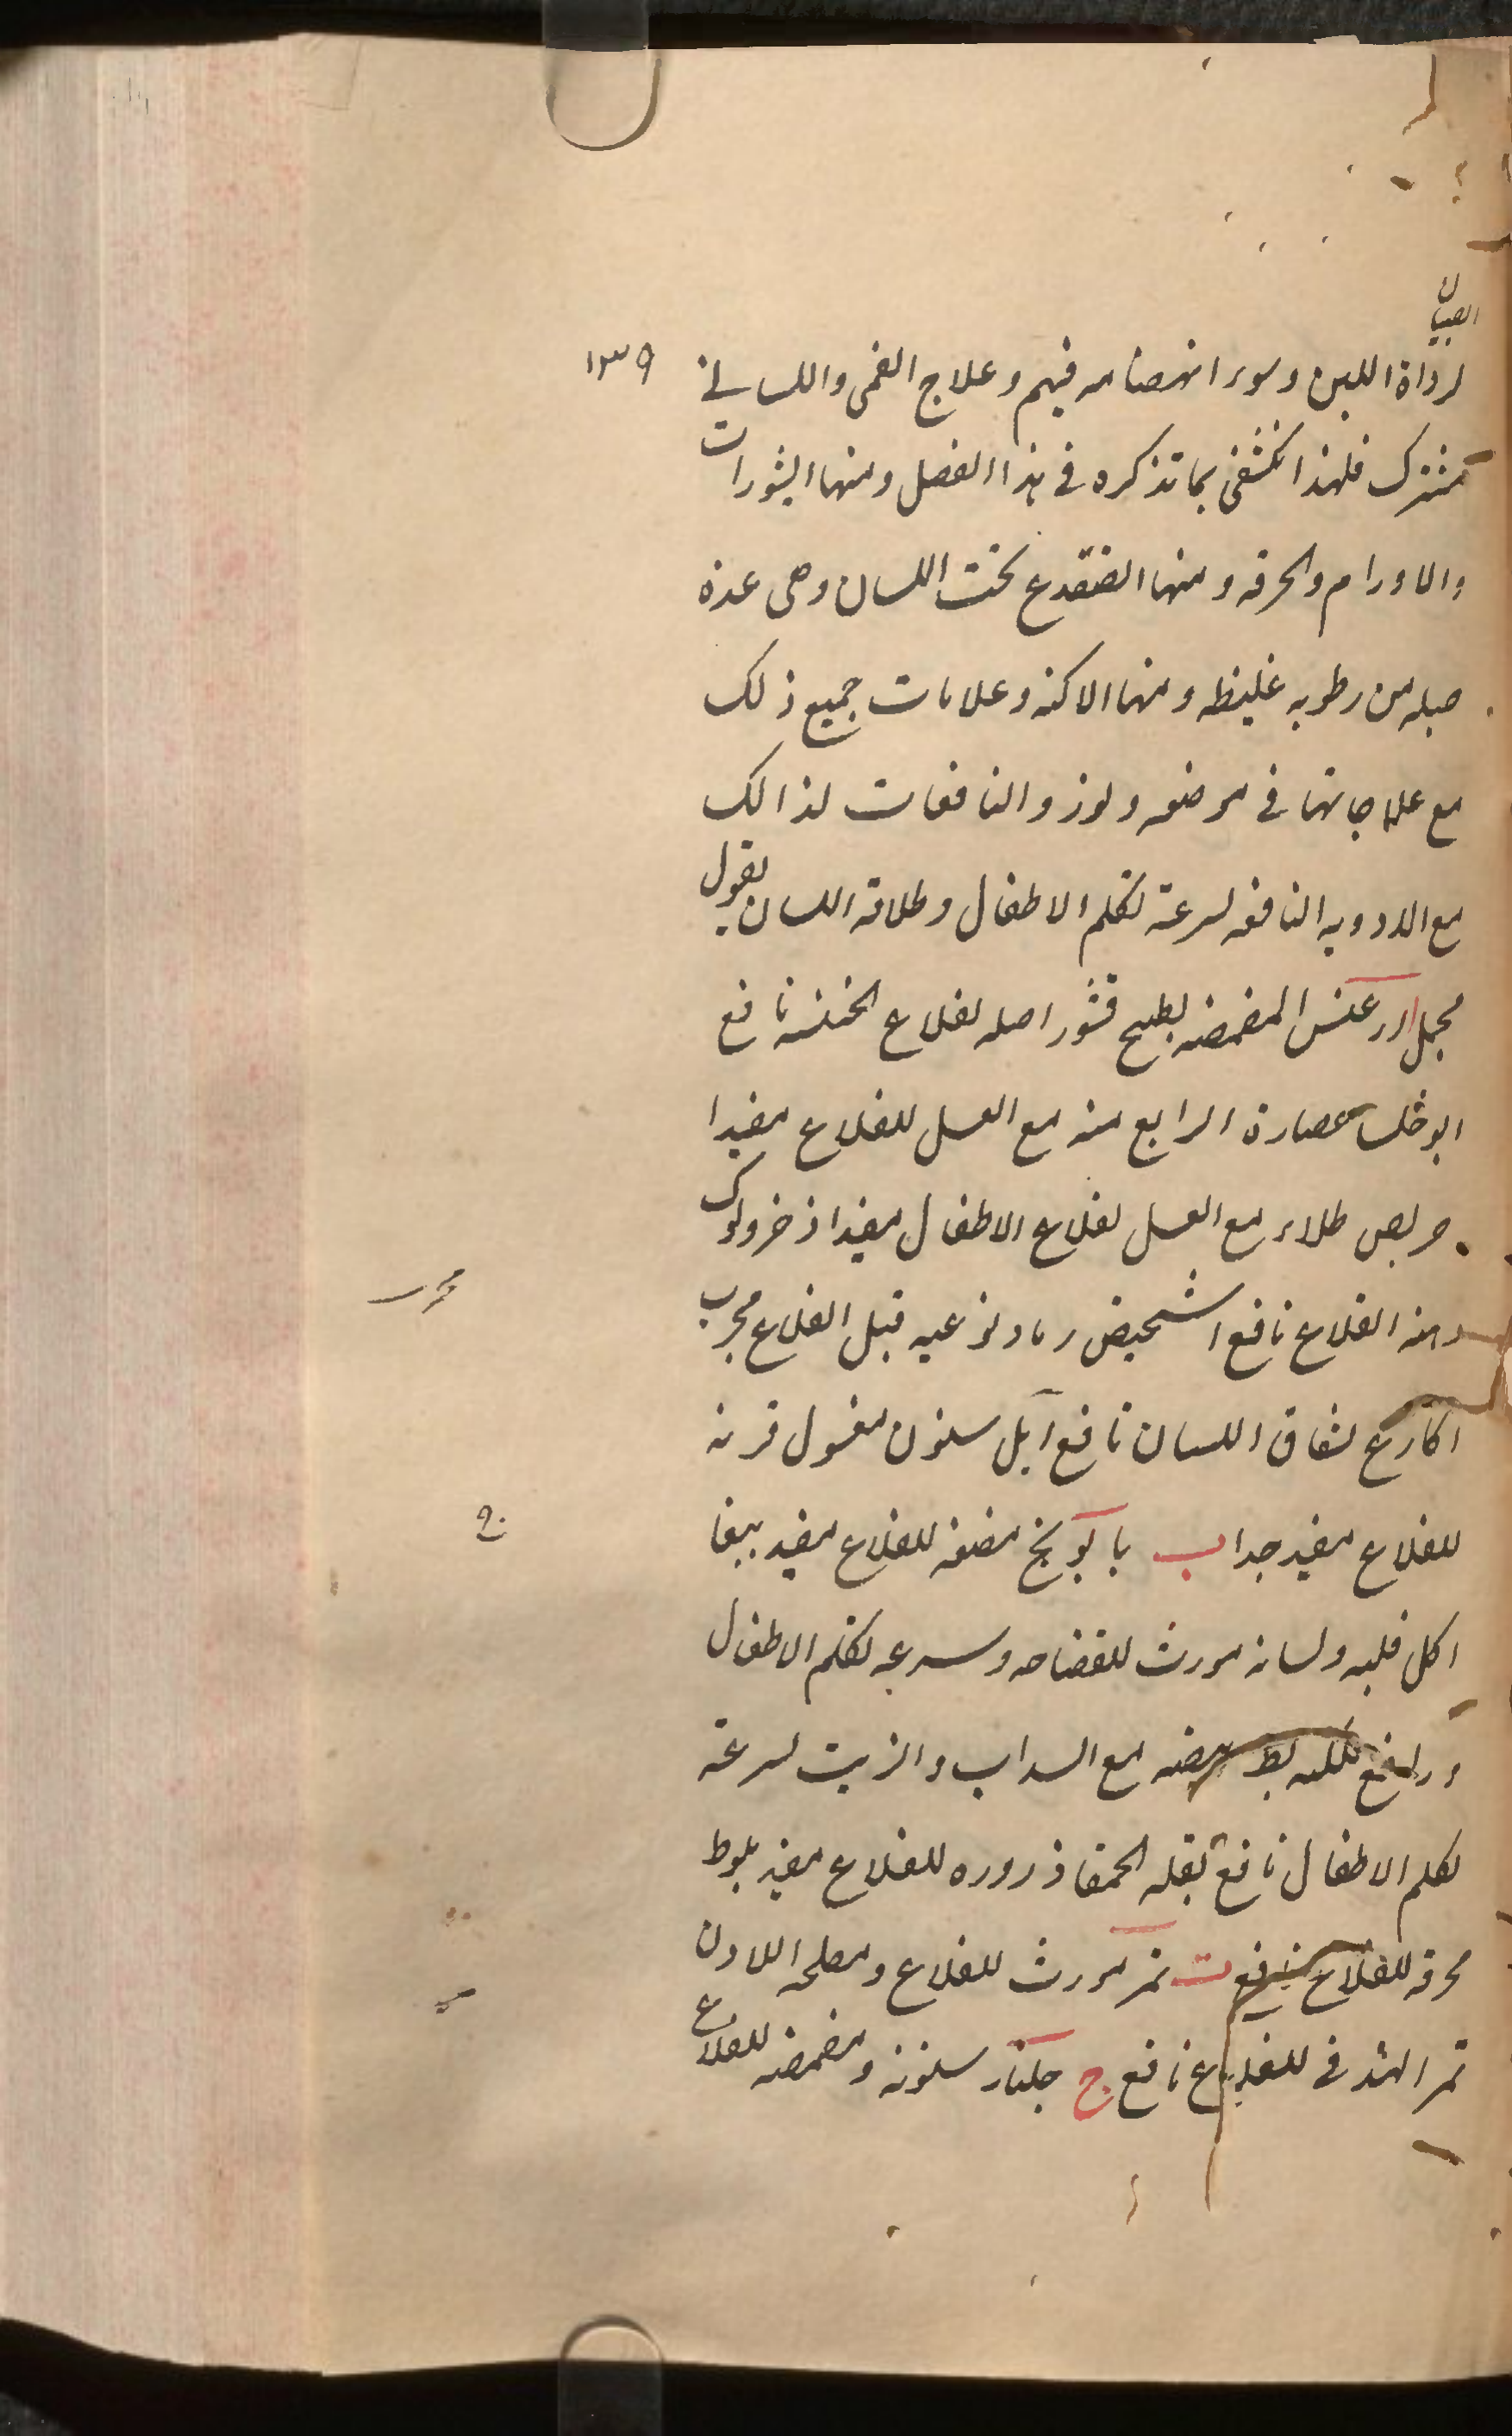 الصبيان
لرداة اللبن وسوء انهضامه فيهم وعلاج الفمى واللسانى
١٣٩
مشترك فلهذا نكتفى بما تذكره فى هذا الفصل ومنها البثورات
والاورام والحرقه ومنها الضفدع تحت اللسان وهى غدة
صبله من رطوبه غليظه ومنها الاكنه وعلامات جميع ذلك
مع علاجاتها فى موضعه ولوز والنافعات لذالك
مع الادويه النافعه لسرعة تكلم الاطفال وطلاقة اللسان بقول
مجمل ارعنس المضمضه بطبيخ قشور اصله لقلاع الخنسه نافع
ابوخلسا عصارة الرابع منه مع العسل للقلاع مفيدا
حريص طلاء مع العسل لقلاع الاطفال مفيد اذخر ولوك
دهنه القلاع نافع اشحيض رماد نوعيه قبل القلاع مجرب
مجرب
اكارع لشقاق اللسان نافع آيل سنون مغسول قرنه
للقلاع مفيد جدا ب بابونج مضغه للقلاع مفيد ببغا
اكل قلبه ولسانه مورث للفصاحه وسرعه تكلم الاطفال
ورافع للكنه بط بيضه مع السداب والزيت لسرعة
تكلم الاطفال نافع بقله الحمقا ذروره للقلاع مفيد بلوط
محرقه للقلاع نافع ت تمر مورث للقلاع ومصلحه اللادن
تمر الهندى للقلاع نافع ج جلنار سنونه ومضمضه للقلاع